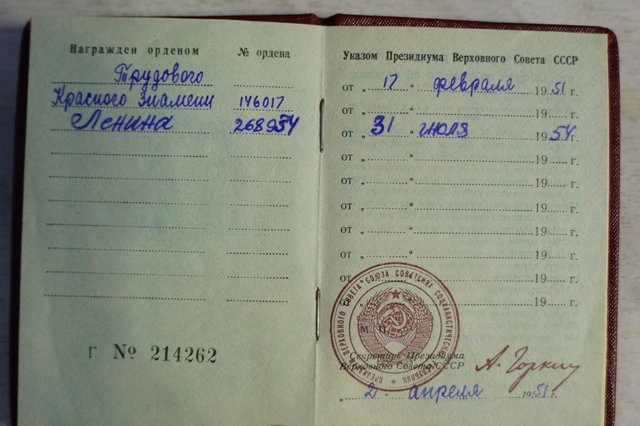 Награжден орденом № ордена
Трудового
Красного Знамени 146017
Ленина 268954
Г № 214262
Указом Президиума Верховного Совета СССР
от „ 17 “ февраля 1951 г.
от „ “ 19 г.
от „ 31 “ июля 1954 г.
от „ “ 19 г.
от „ “ 19 г.
от „ “ 19 г.
от „ “ 19 г.
от „ “ 19 г.
от „ “ 19 г.
19 г.
ПРЕЗИДИУМ ВЕРХОВНОГО СОВЕТА СОЮЗА СОВЕТСКИХ СОЦИАЛИСТИЧЕСКИХ РЕСПУБЛИК
М. П.
Секретарь Президиума
Верховного Совета СССР А. Горкин
„ 2 “ апреля 1951 г.